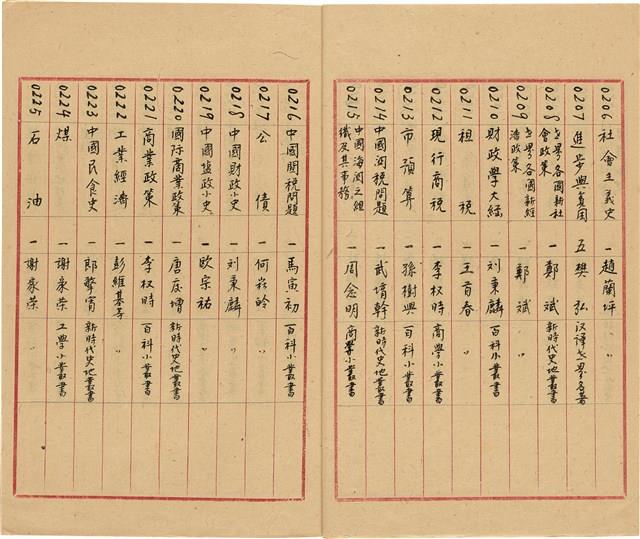 0206 社會主義史 一 趙蘭坪 〃
0207 進步與貧困 五 樊弘 汉譯世界名著
0208 世界各國新社會政策 一 鄭斌 新時代史地叢書
0209 世界各國新經濟政策 一 鄭斌 〃
0210 財政學大綱 一 刘秉麟 百科小叢書
0211 租税 一 王首春 〃
0212 現行商税 一 李权時 商學小叢書
0213 市預算 一 孫樹興 百科小叢書
0214 中國関税問題 一 武堉幹 新時代史地叢書
0215 中國海関之組織及其事務 一 周念明 商學小叢書
0216 中國関税問題 一 馬寅初 百科小叢書
0217 公債 一 何崧齡 〃
0218 中國財政小史 一 刘秉麟 〃
0219 中國塩政小史 一 欧宗祐 〃
0220 國际商業政策 一 唐慶增 新時代史地叢書
0221 商業政策 一 李权時 百科小叢書
0222 工業經濟 一 彭維基等 〃
0223 中國民食史 一 郎擎霄 新時代史地叢書
0224 煤 一 謝家荣 工學小叢書
0225 石油 一 謝家荣 〃